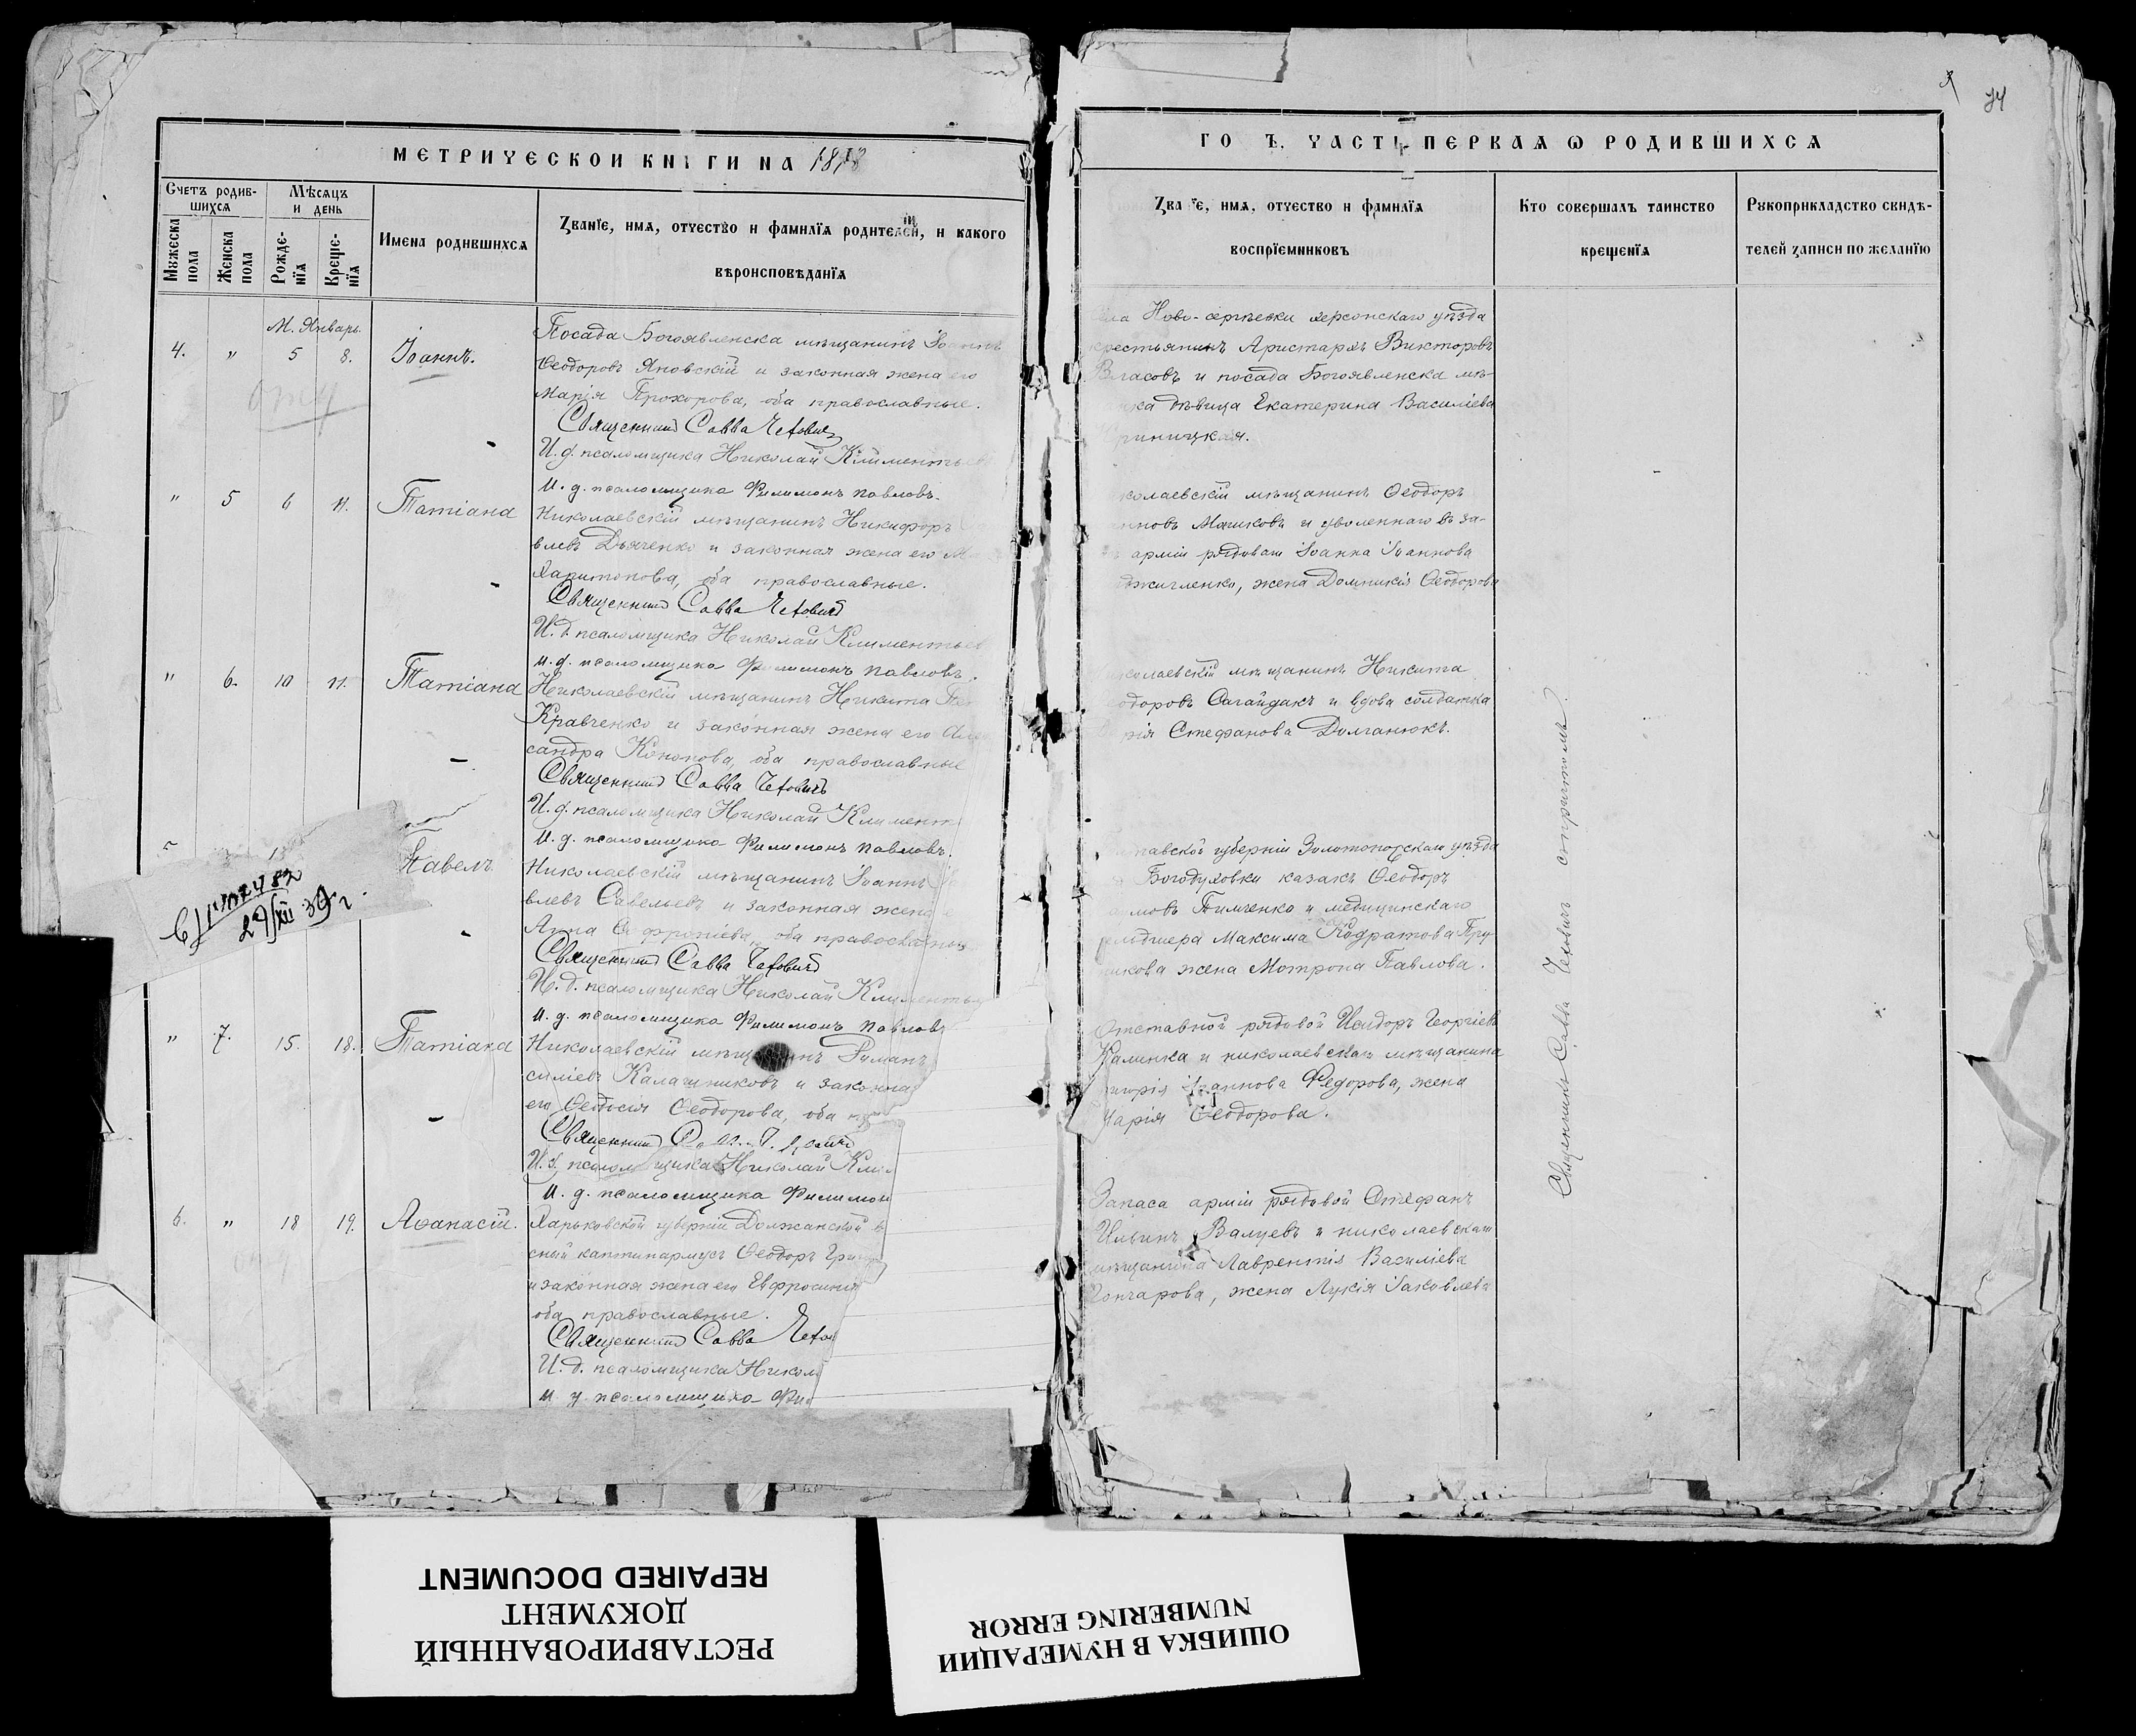 МЕТРИЧЕСКОЙ КНИ ГИ НА 18
Счетъ родив-
шихся
Мѣсяцъ
и день
Мужеска
пола
Женска
пола
Рожде-
нїя
Креще-
нїя
Имена родившихся
Званїе, имя, отчество и фамилїа родителей, и какого
вѣроисповѣданїя
М. Январь.
4. " 5 8. Іоаннъ.
Посада Богоявленска мѣщанинъ Іоаннъ
Ѳеодоровъ Яновскій и законная жена его
Марія Прохорова, оба православные.
Священникъ Савва
И. д. псаломщика Николай Климентьев
И. д. псаломщика Филимонъ Павловъ.
" 5 6 11. Татіана
Николаевскій мѣщанинъ Никифоръ
влевъ Дьяченко и законная жена его М
Харитонова, оба православные.
Священникъ Савва
И. д. псаломщика Николай Климентьев
И. д. псаломщика Филимонъ Павловъ.
" 6. 10 11. Татіана
Николаевскій мѣщанинъ Никита
Кравченко и законная жена его Алек
сандра Кононова, оба православные
Священникъ Савва
И. д. псаломщика Николай Климент
И. д. псаломщика Филимонъ Павловъ.
Павелъ
Николаевскій мѣщанинъ Іоаннъ
влевъ Савельевъ и законная жена е
Анна оба православные
Священникъ Савва
И. д. псаломщика Николай Климентьев
И. д. псаломщика Филимонъ Павловъ
29/XII 39 г.
" 7. 15. 18. Татіана
Николаевскій мѣщанинъ Романъ
силіевъ Калашниковъ и законная
его Ѳеодосія Ѳеодорова, оба
Священникъ
И. д. псаломщика Николай Кли
И. д. псаломщика Филимон
6. " 18 19. Аѳанасій.
Харьковской губерніи Должанской в
сный каптинармусъ Ѳеодоръ Григ
и законная жена его Евфросинія
оба православные.
Священникъ Савва
И. д. псаломщика Никол
И. д. псаломщика Фи
74
ГО Ъ, ЧАСТЬ ПЕРВАЯ Ѡ РОДИВШИХСЯ
Зва їе, имя, отчество и фамилїа
воспрїемниковъ
Кто совершалъ таинство
крещенїя
Рукоприкладство свидѣ-
телей записи по желанїю
ла Ново-сергѣевки херсонскаго уѣзда
крестьянинъ Аристархъ Викторовъ
Власовъ и посада Богоявленска мѣ-
нка дѣвица Екатерина Василіева
риницкая.
колаевскій мѣщанинъ Ѳеодоръ
нновъ Мячиковъ и уволеннаго въ за-
арміи рядоваго Іоанна Іоаннова
джигленко, жена Домникія Ѳеодорова
колаевскій мѣщанинъ Никита
одоровъ Сагайдакъ и вдова солдатка
рія Стефанова Долганюкъ.
тавской губерніи Золотоношскаго уѣзда
Богодуховки казакъ Ѳеодоръ
мовъ Тимченко и медицинскаго
фельдшера Максима Кодратова Пру
никова жена Мотрона Павлова.
Отставной рядовой Исидоръ Георгіевъ
Калинка и николаевскаго мѣщанина
игорія Іоаннова Федорова, жена
Марія Ѳеодорова.
Запаса арміи рядовой Стефанъ
Ильинъ Валуевъ и николаевскаго
мѣщанина Лаврентія Василіева
Гончарова, жена Лукія Іаковлева
Священникъ Савва съ причтомъ.
РЕСТАВРИРОВАННЫЙ
ДОКУМЕНТ
REPAIRED DOCUMENT
ОШИБКА В НУМЕРАЦИИ
NUMBERING ERROR